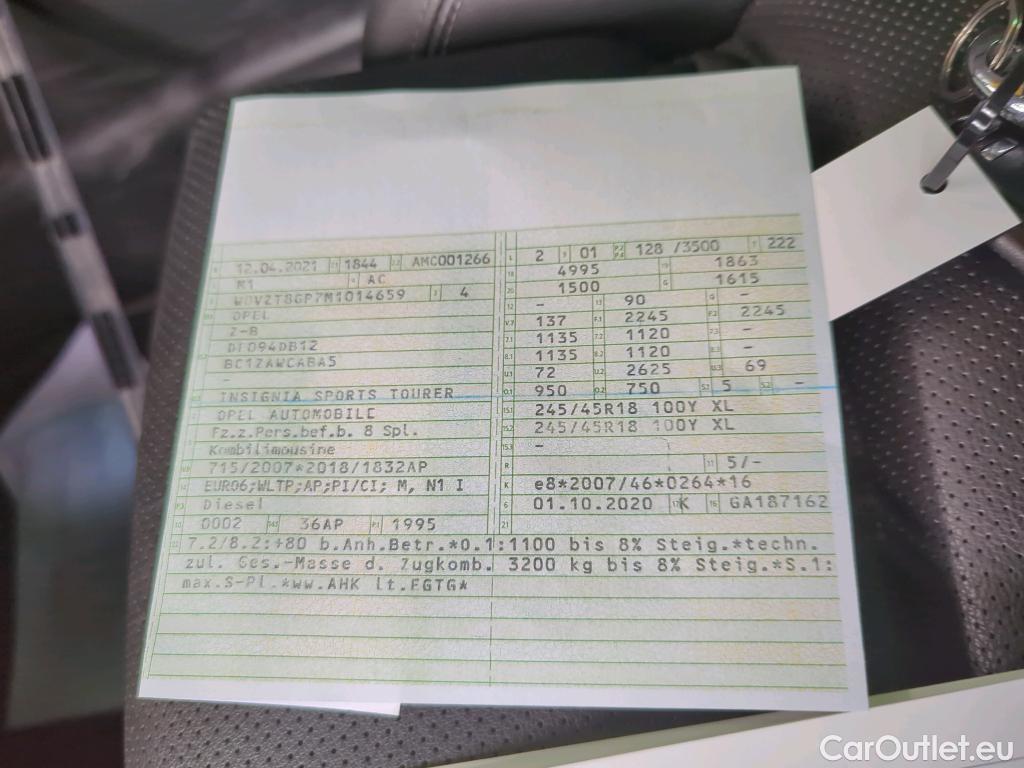 12.04.2021 1844 AMC001266
M1 AC
W0VZT8GP7M1014659 4
OPEL
Z-B
DF094DB12
BC1ZAWCABA5
-
INSIGNIA SPORTS TOURER
OPEL AUTOMOBILE
Fz.z.Pers.bef.b. 8 Spl.
Kombilimousine
715/2007*2018/1832AP
EURO6;WLTP;AP;PI/CI; M, N1 I
Diesel
0002 36AP 1995
2 01 128 /3500 222
4995 1863
1500 1615
- 90 -
137 2245 2245
1135 1120 -
1135 1120 -
72 2625 69
950 750 5 -
245/45R18 100Y XL
245/45R18 100Y XL
-
5/-
e8*2007/46*0264*16
01.10.2020 K GA187162
21
7.2/8.2:+80 b.Anh.Betr.*O.1:1100 bis 8% Steig.*techn.
zul. Ges.-Masse d. Zugkomb. 3200 kg bis 8% Steig.*S.1:
max.S-Pl.*ww.AHK lt.EGTG*
CarOutlet.eu